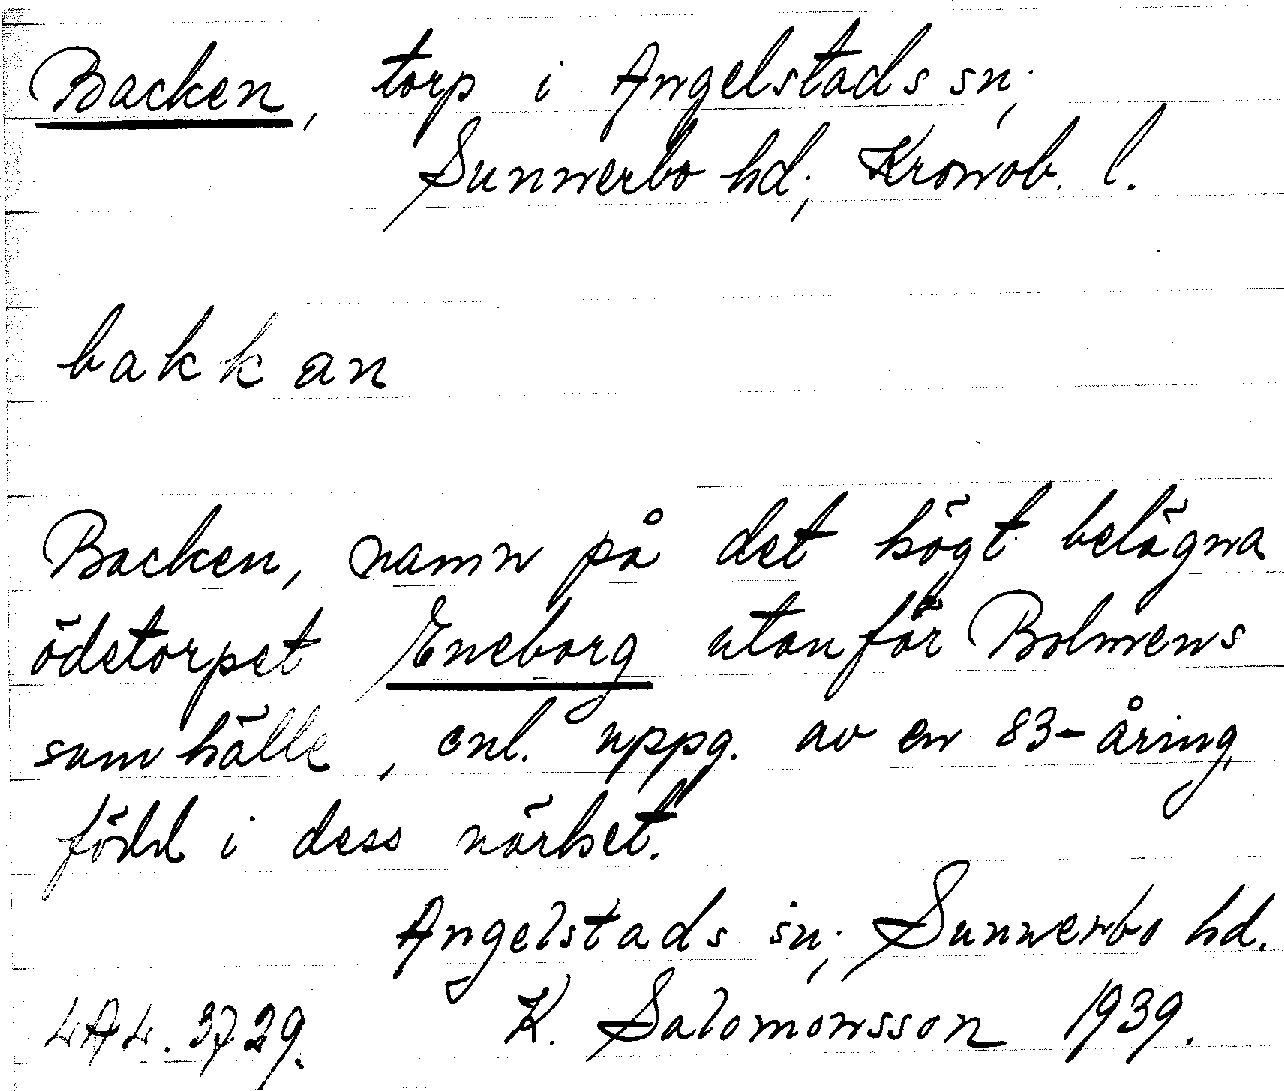 Backen, torp i Angelstads sn;
Sunnerbo hd; Kronob. l.
bakkan
Backen, namn på det högt belägna
ödetorpet Eneborg utanför Bolmens
samhälle, enl. uppg. av en 83-åring,
född i dess närhet.
Angelstads sn; Sunnerbo hd.
4A4.3729. K. Salomonsson 1939.